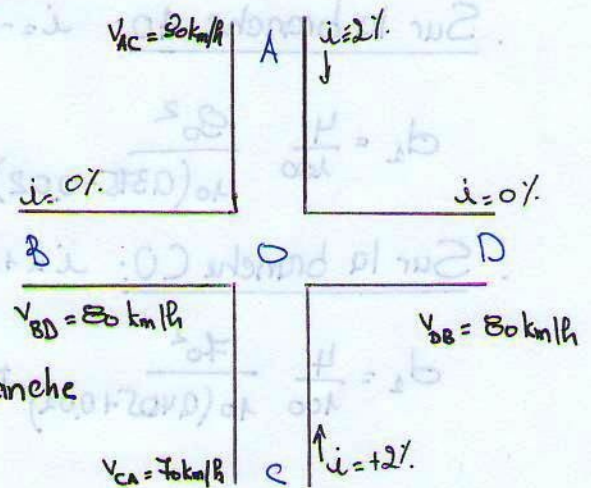 V_AC = 80 km/h A i=2%
i= 0% i= 0%
B O D
V_BD = 80 km/h V_DB = 80 km/h
anche
V_CA = 70 km/h C i=+2%